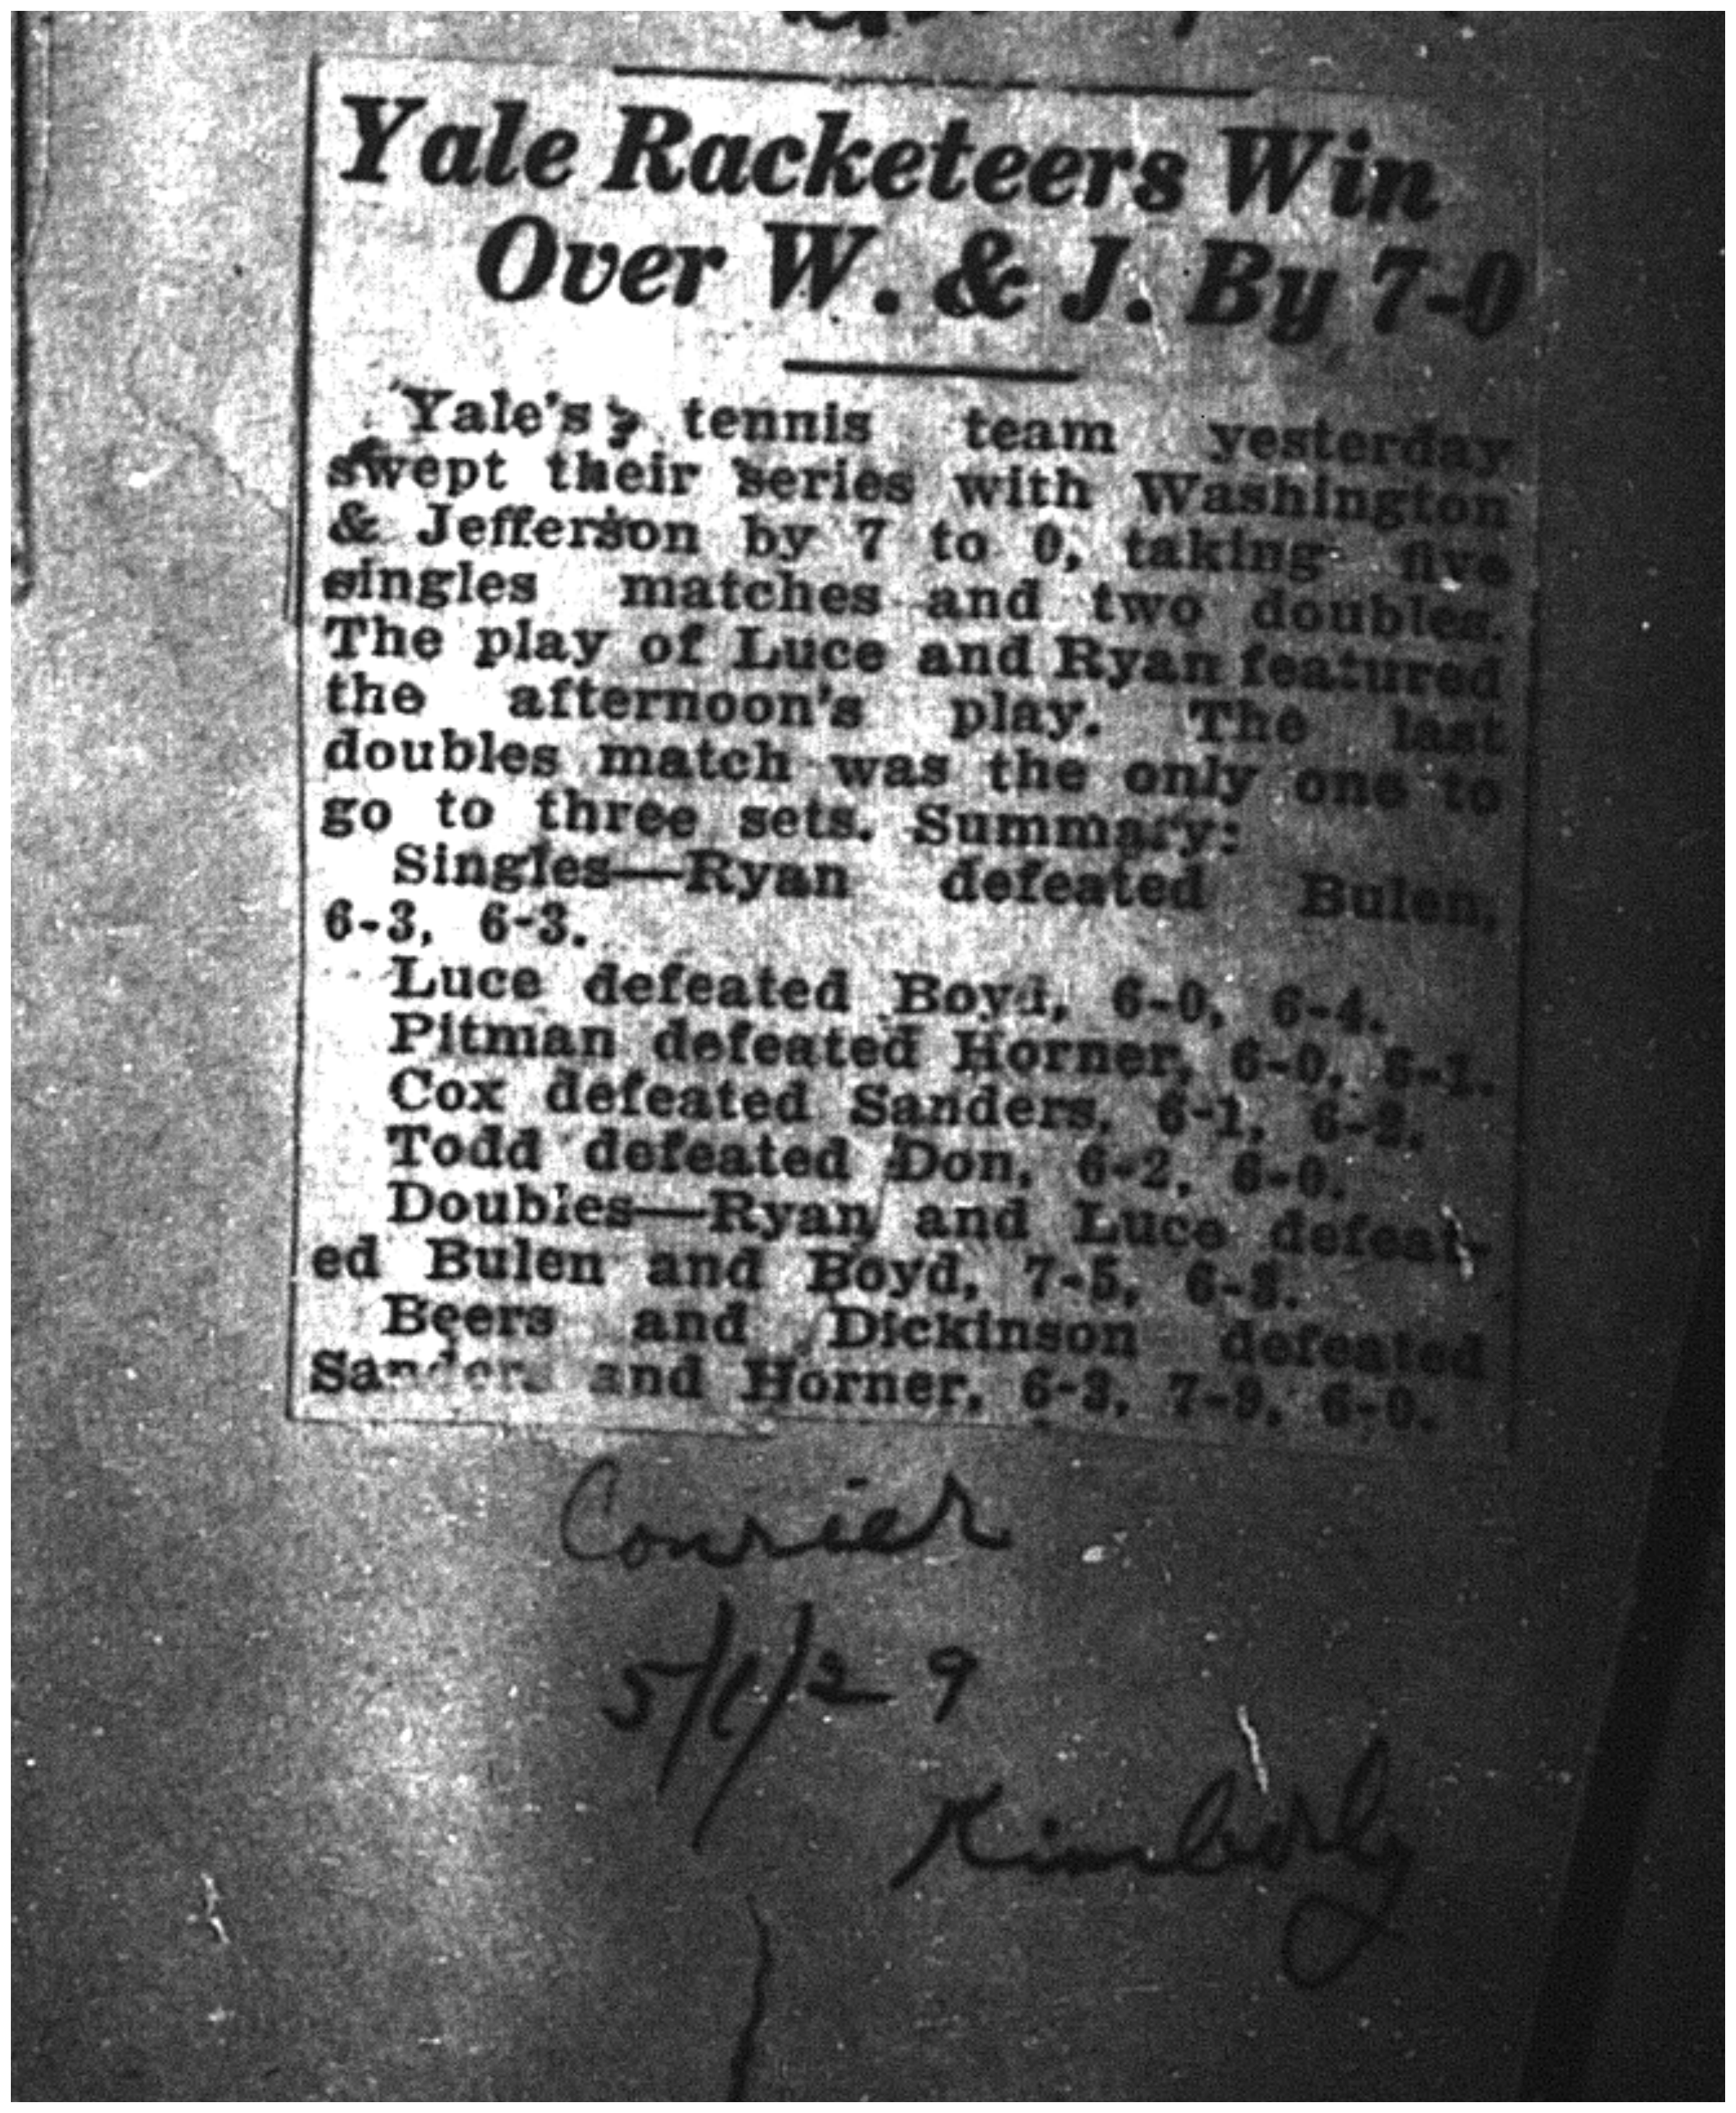 Yale Racketeers Win
Over W. & J. By 7-0
Yale's tennis team yesterday
swept their series with Washington
& Jefferson by 7 to 0, taking five
singles matches and two doubles.
The play of Luce and Ryan featured
the afternoon's play. The last
doubles match was the only one to
go to three sets. Summary:
Singles—Ryan defeated Bulen,
6-3, 6-3.
Luce defeated Boyd, 6-0, 6-4.
Pitman defeated Horner, 6-0, 6-1.
Cox defeated Sanders, 6-1, 6-2.
Todd defeated Don, 6-2, 6-0.
Doubles—Ryan and Luce defeat-
ed Bulen and Boyd, 7-5, 6-3.
Beers and Dickinson defeated
Sanders and Horner, 6-3, 7-9, 6-0.
Courier
5/1/29
Kimberly